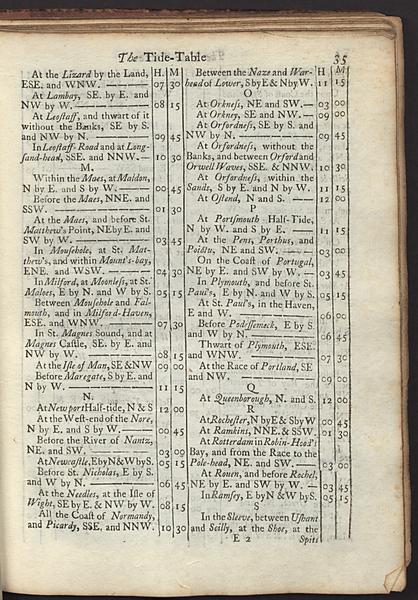 The Tide-Table. 35
At the Lizard by the Land, H. M
ESE. and WNW. 07 30
At Lambay, SE. by E. and
NW by W. 08 15
At Leostaff, and thwart of it
without the Banks, SE by S.
and NW by N. 09 45
In Leostaff-Road and at Long-
sand-head, SSE. and NNW. 10 30
M.
Within the Maes, at Maldon,
N by E. and S by W. 00 45
Before the Maes, NNE. and
SSW. 01 30
At the Maes, and before St.
Matthew's Point, NE by E. and
SW by W 03 45
In Mousehole, at St. Mat-
thew's, and within Mount's-bay,
ENE. and WSW. 04 30
In Milford, at Moonless, at St.
Maloes, E by N. and W by S. 05 15
Between Mousehole and Fal-
mouth, and in Milford-Haven,
ESE. and WNW. 07 30
In St. Magnes Sound, and at
Magnes Castle, SE. by E. and
NW by W. 08 15
At the Isle of Man, SE & NW 09 00
Before Maregate, S by E. and
N by W. 11 15
N.
At Newport Half-tide, N & S 12 00
At the West-end of the Nore,
N by E. and S by W 00 45
Before the River of Nantz,
NE. and SW. 03 00
At Newcastle, E by N & W by S. 05 15
Before St. Nicholas, E by S.
and W by N. 06 45
At the Needles, at the Isle of
Wight, SE by E. & NW by W. 08 15
All the Coast of Normandy,
and Picardy, SSE. and NNW. 10 30
Between the Naze and War- H M
head of Lower, S by E & N by W. 11 15
O
At Orkness, NE and SW. 03 00
At Orkney, SE and NW. 09 00
At Orfordness, SE by S. and
NW by N. 09 45
At Orfordness, without the
Banks, and between Orford and
Orwell Waves, SSE. & NNW. 10 30
At Orfordness, within the
Sands, S by E. and N by W 11 15
At Ostend, N and S. 12 00
P
At Portsmouth Half-Tide,
N by W. and S by E. 11 15
At the Pens, Porthus, and
Poictu, NE and SW. 03 00
On the Coast of Portugal,
NE by E. and SW by W. 03 45
In Plymouth, and before St.
Paul's, E by N. and W by S. 05 15
At St. Paul's, in the Haven,
E and W. 06 00
Before Podessemeck, E by S
and W by N. 06 45
Thwart of Plymouth, ESE.
and WNW. 07 30
At the Race of Portland, SE
and NW. 09 00
Q
At Queenborough, N. and S. 12 00
R.
At Rochester, N by E & S by W 00 45
At Ramkins, NNE. & SSW. 01 30
At Rotterdam in Robin-Hood's
Bay, and from the Race to the
Pole-head, NE. and SW. 03 00
At Rouen, and before Rochel,
NE by E. and SW by W. 03 45
In Ramsey, E by N & W by S. 05 15
S
In the Sleeve, between Ushant
and Scilly, at the Shoe, at the
E 2 Spits